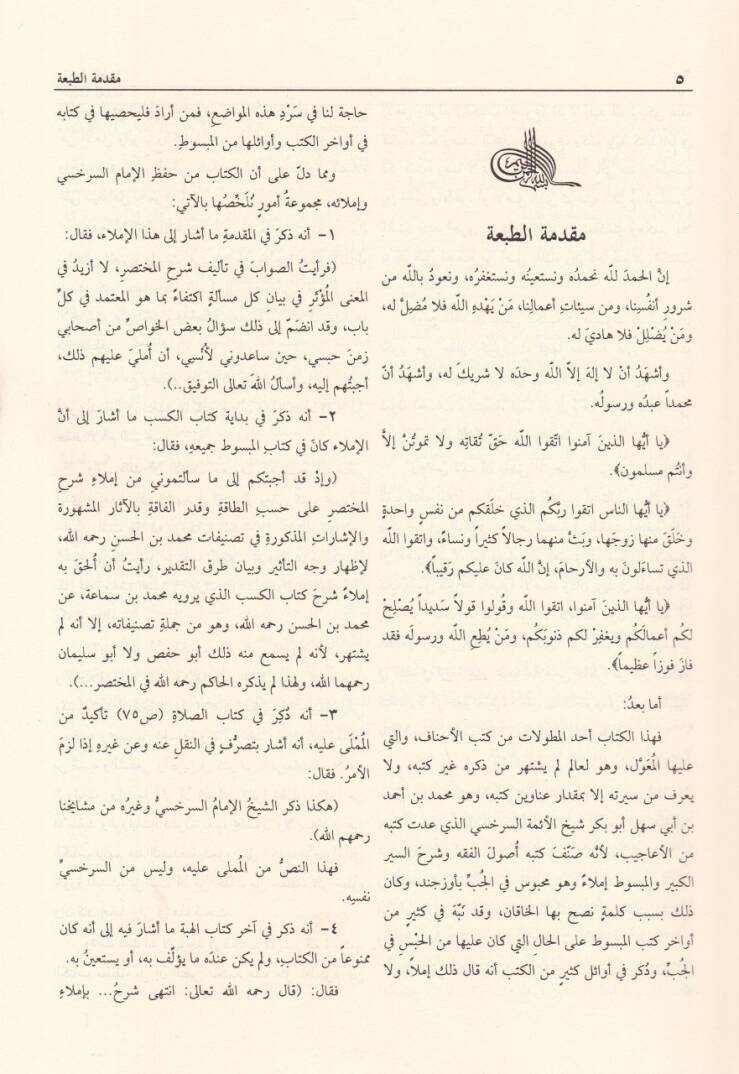 ٥
مقدمة الطبعة
مقدمة الطبعة
إنَّ الحمدَ للّه نحمدُه ونستعينُه ونستغفرُه، ونعودُ باللّه من
شرورِ أنفُسِنا، ومن سيئاتِ أعمالِنا، مَنْ يَهْدِهِ اللّه فلا مُضِلَّ له،
ومَنْ يُضْلِلْ فلا هاديَ له.
وأشهَدُ أنْ لا إلهَ إلاَّ اللّه وحدَه لا شريكَ له، وأشهَدُ أنّ
محمداً عبدُه ورسولُه.
﴿يا أيُّها الذينَ آمنوا اتّقوا اللّه حَقّ تُقاتِه ولا تموتُنَّ إلاَّ
وأنتُم مسلمون﴾.
﴿يا أيُّها الناس اتقوا ربَّكُم الذي خلَقكم من نفسٍ واحدةٍ
وخلَقَ منها زوجَها، وبَثَّ منهما رجالاً كثيراً ونساءً، واتقوا اللّه
الذي تساءَلونَ به والأرحامَ، إنَّ اللّه كانَ عليكم رَقيباً﴾.
﴿يا أيُّها الذينَ آمنوا، اتقوا اللّه وقُولوا قولاً سَديداً يُصْلِحْ
لكُم أعمالَكُم ويغفِرْ لكم ذنوبَكُم، ومَنْ يُطِعِ اللّه ورسولَه فقد
فازَ فوزاً عظيماً﴾.
أما بعدُ:
فهذا الكتاب أحد المطولات من كتب الأحناف، والتي
عليها المُعَوَّل، وهو لعالم لم يشتهر من ذكره غير كتبه، ولا
يعرف من سيرته إلا بمقدار عناوين كتبه، وهو محمد بن أحمد
بن أبي سهل أبو بكر شيخ الأئمة السرخسي الذي عدت كتبه
من الأعاجيب، لأنَّه صَنّفَ كتبه أُصولَ الفقه وشرحَ السير
الكبير والمبسوط إملاءً وهو محبوس في الجُبِّ بأوزجند، وكان
ذلك بسبب كلمةٍ نصح بها الخاقان، وقد نَبَّهَ في كثيرٍ من
أواخر كتب المبسوط على الحالِ التي كان عليها من الحَبْسِ في
الجُبِّ، وذُكر في أوائل كثيرٍ من الكتب أنه قال ذلك إملاً، ولا
حاجة لنا في سَرْدِ هذه المواضعِ، فمن أرادَ فليحصيها في كتابه
في أواخر الكتب وأوائلها من المبسوطِ.
ومما دلّ على أن الكتاب من حفظِ الإمام السرخسي
وإملائه، مجموعةُ أمورٍ نُلَخِّصُها بالآتي:
١- أنه ذكرَ في المقدمةِ ما أشار إلى هذا الإملاء، فقال:
(فرأيتُ الصوابَ في تأليف شرحِ المختصرِ، لا أزيدُ في
المعنى المُؤَثّرِ في بيانِ كل مسألةٍ اكتفاءً بما هو المعتمد في كلِّ
باب، وقد انضمّ إلى ذلك سؤالُ بعض الخواصِّ من أصحابي
زمنَ حبسي، حين ساعدوني لأُنْسِي، أن أُمليَ عليهم ذلك،
أجبتُهم إليه، وأسألُ اللهَ تعالى التوفيق..).
٢- أنه ذكرَ في بداية كتاب الكسب ما أشارَ إلى أنَّ
الإملاء كانَ في كتابِ المبسوط جميعِهِ، فقال:
(وإذْ قد أجبتكم إلى ما سألتموني من إملاءِ شرحِ
المختصرِ على حسبِ الطاقةِ وقدر الفاقةِ بالآثارِ المشهورة
والإشاراتِ المذكورةِ في تصنيفات محمد بن الحسنِ رحمه الله،
لإظهار وجه التأثير وبيان طرق التقدير، رأيتُ أن أُلحقَ به
إملاءً شرحَ كتابِ الكسب الذي يرويه محمد بن سماعة، عن
محمد بن الحسن رحمه الله، وهو من جملةِ تصنيفاته، إلا أنه لم
يشتهر، لأنه لم يسمع منه ذلك أبو حفص ولا أبو سليمان
رحمهما الله، ولهذا لم يذكره الحاكم رحمه اللهُ في المختصر...).
٣- أنه ذُكِرَ في كتاب الصلاةِ (ص٧٥) تأكيدٌ من
المُمْلَى عليه، أنه أشار بتصرُّفٍ في النقلِ عنه وعن غيرِهِ إذا لزمَ
الأمرُ. فقال:
(هكذا ذكر الشيخُ الإمامُ السرخسيُّ وغيرُه من مشايخنا
رحمهم الله).
فهذا النصُّ من المُملى عليه، وليس من السرخسيِّ
نفسِه.
٤- أنه ذكر في آخر كتاب الهبة ما أشارَ فيه إلى أنه كان
ممنوعاً من الكتابِ، ولم يكن عندَه ما يؤلّف به، أو يستعينُ به.
فقال: (قال رحمه الله تعالى: انتهى شرحُ... بإملاءِ